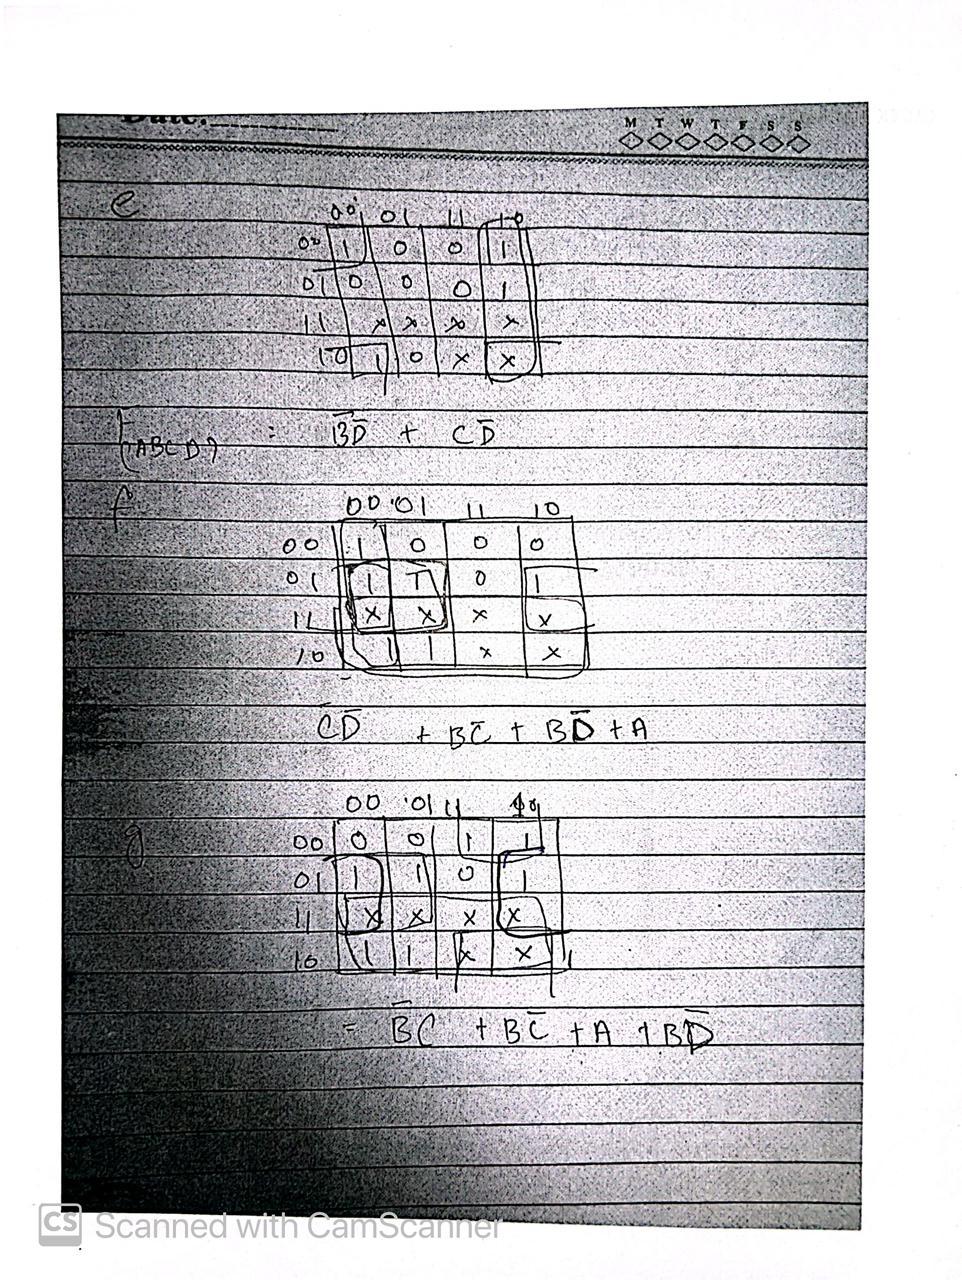 Date:
M T W T F S S
e
00 01 11 10
00 1 0 0 1
01 0 0 0 1
11 x x x x
10 1 0 x x
F(ABCD) = B̅D̅ + CD̅
f
00 01 11 10
00 1 0 0 0
01 1 1 0 1
11 x x x x
10 1 1 x x
C̅D̅ + BC̅ + BD̅ + A
g
00 01 11 10
00 0 0 1 1
01 1 1 0 1
11 x x x x
10 1 1 x x
= B̅C + BC̅ + A + BD̅
CS Scanned with CamScanner